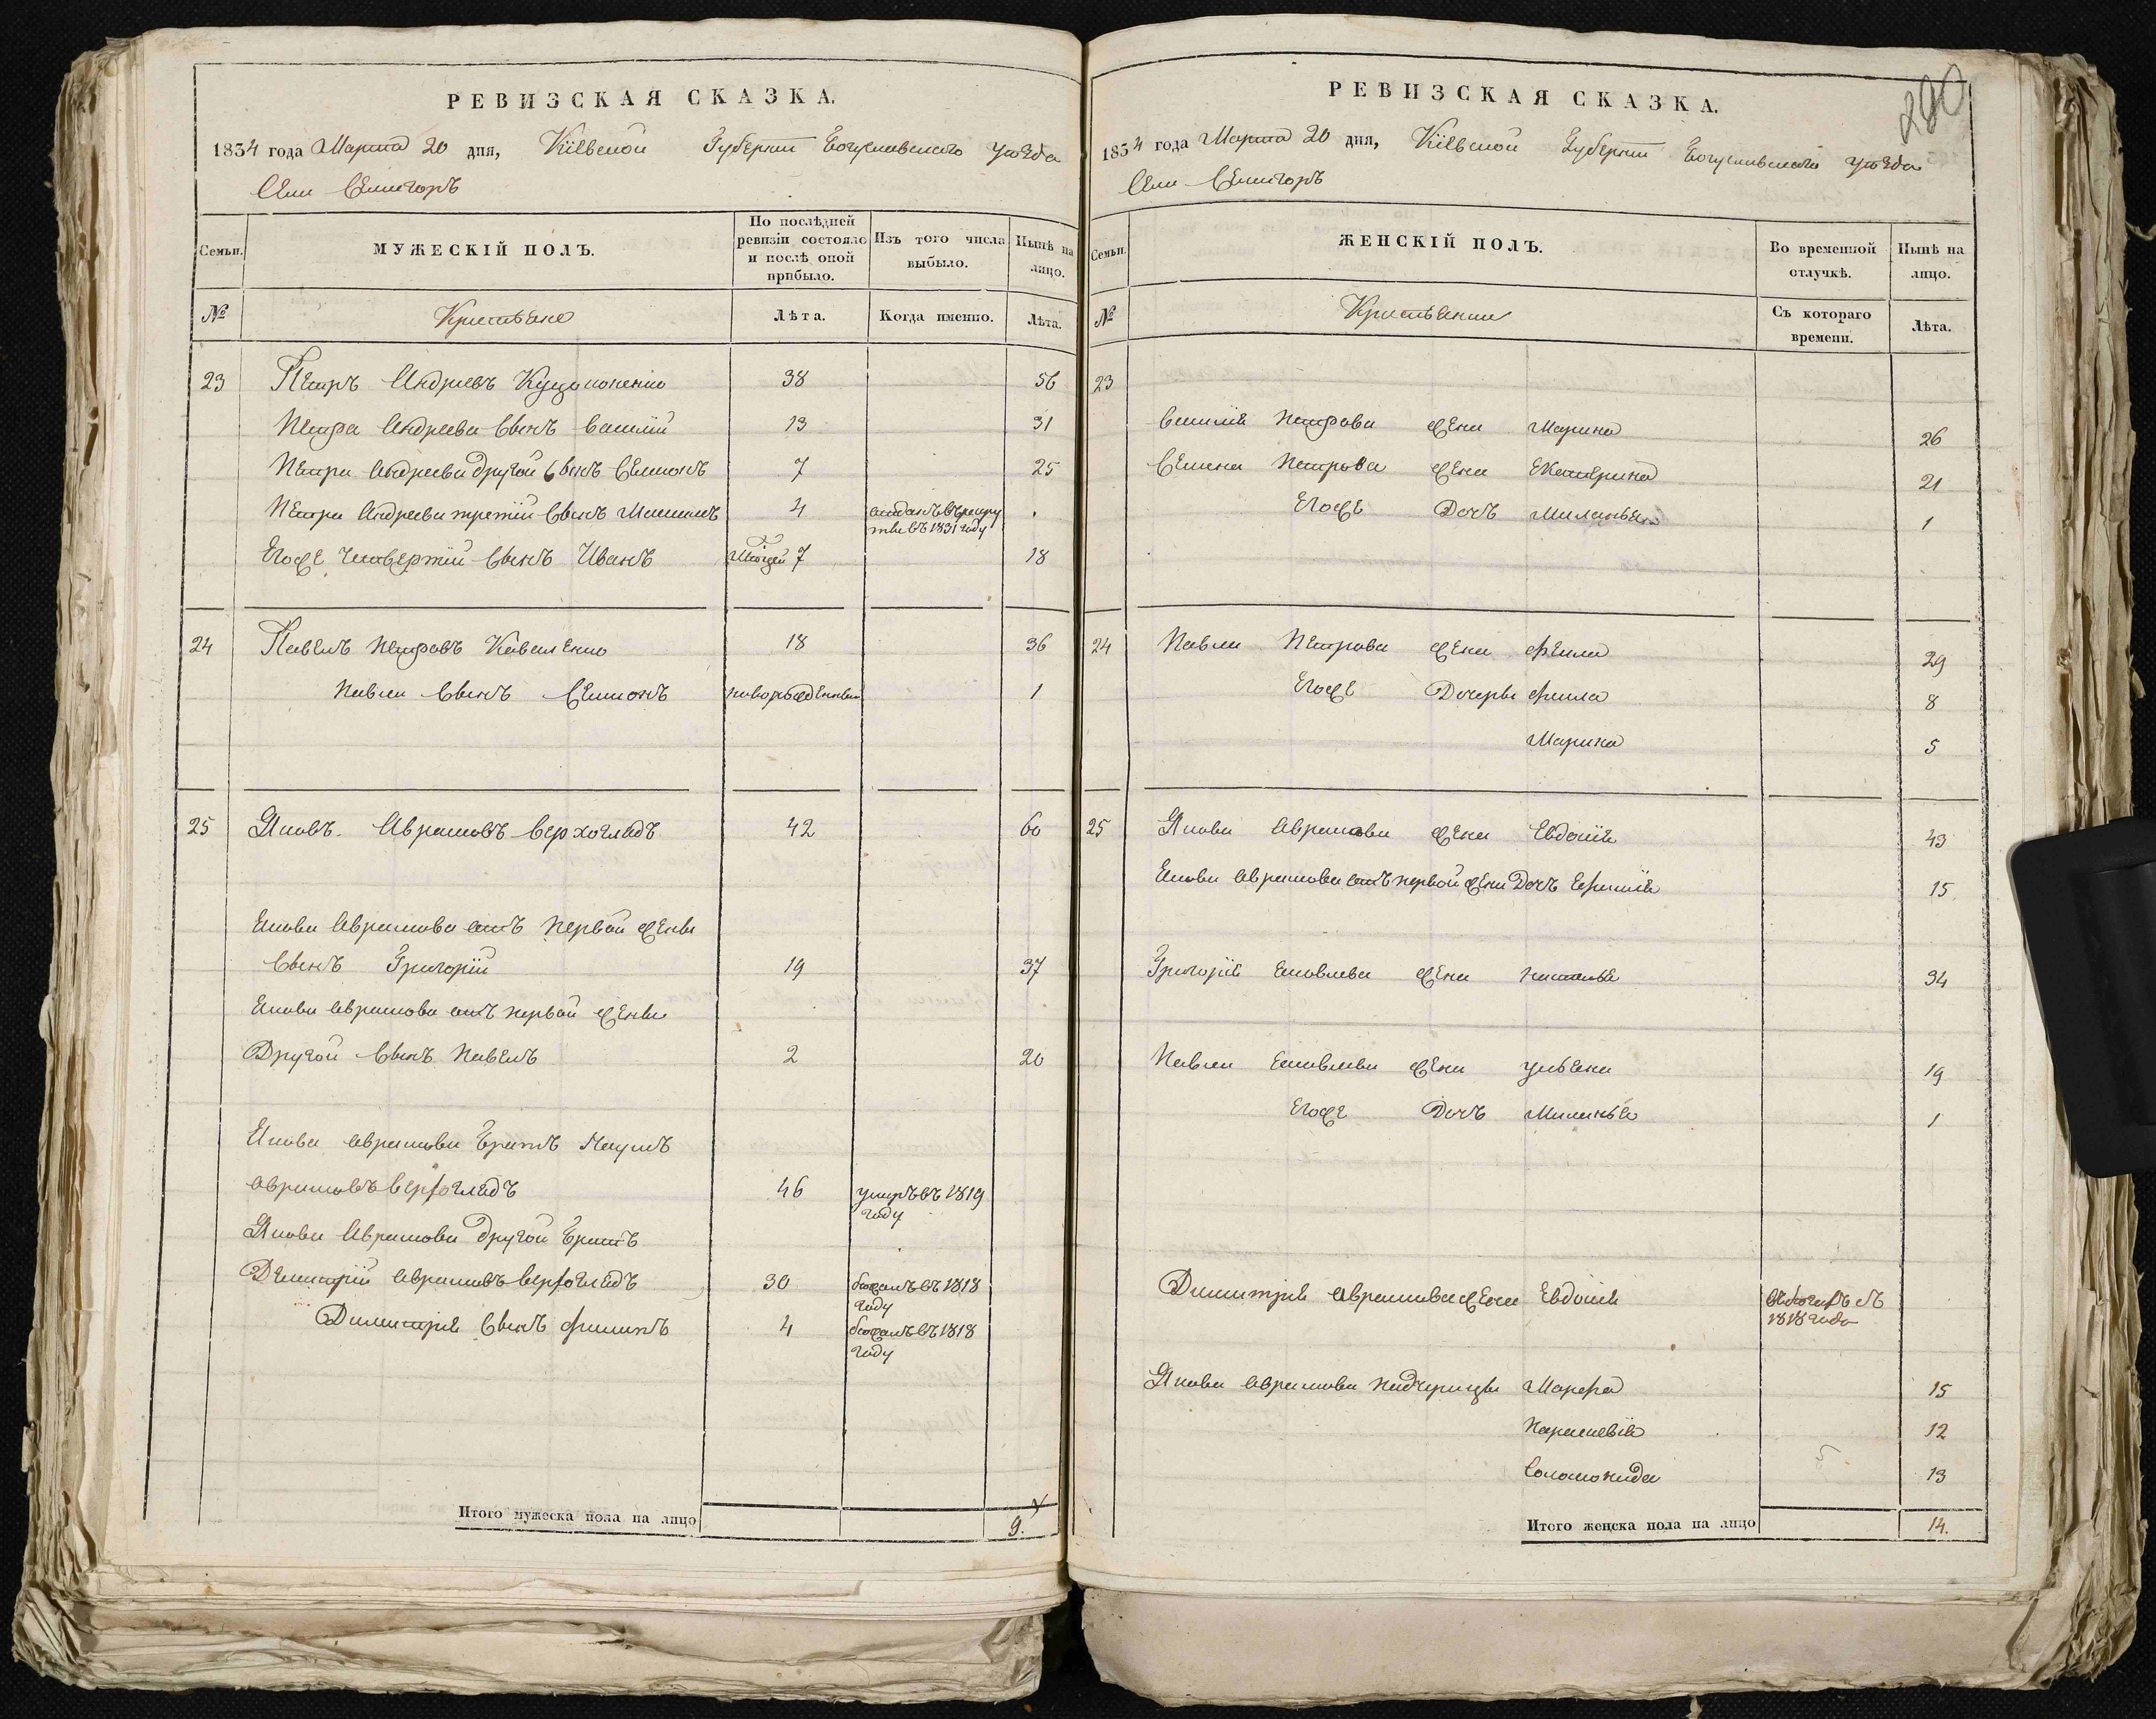 РЕВИЗСКАЯ СКАЗКА.
1834 года Марта 20 дня, Кіевской Губерніи Богуславскаго уѣзда
Села Селигоръ
Семьи.
МУЖЕСКІЙ ПОЛЪ.
По послѣдней ревизіи состояло и послѣ оной прибыло.
Изъ того числа выбыло.
Нынѣ на лицо.
№
Крестьяне
Лѣта.
Когда именно.
Лѣта.
23 Петръ Андреевъ 38 56
Петра Андреева Сынъ Василій 13 31
Петра Андреева другой Сынъ Семионъ 7 25
Петра Андреева третій Сынъ 4 отданъ въ рекру
тви въ 1831 году
Егоже Четвертій Сынъ Иванъ 7 18
24 Павелъ Петровъ Коваленко 18 36
Павла Сынъ Семионъ новорожденный 1
25 Яковъ Аврамовъ Верхогладъ 42 60
Якова Аврамова отъ первой жены
Сынъ Григорій 19 37
Якова Аврамова отъ первой жены
Другой Сынъ Павелъ 2 20
Якова Аврамова Братъ Наумъ
Аврамовъ Верхогладъ 46 умръ въ 1819
году
Якова Аврамова другой Братъ
Демитрій Аврамовъ Верхогладъ 30 бежалъ въ 1818
году
Димитрія Сынъ Филипъ 4 бежалъ въ 1818
году
Итого мужеска пола на лицо 9.
РЕВИЗСКАЯ СКАЗКА.
1834 года Марта 20 дня, Кіевской Губерніи Богуславскаго уѣзда
Села Селигоръ
Семьи.
ЖЕНСКІЙ ПОЛЪ.
Во временной отлучкѣ.
Нынѣ на лицо.
№
Крестьянки
Съ котораго времени.
Лѣта.
23
Василія Петрова жена Марина 26
Семена Петрова жена Екатерина 21
Егоже Дочь Миланья 1
24 Павла Петрова жена Фекла 29
Егоже Дочеры Фекла 8
Марина 5
25 Якова Аврамова жена Евдокія 43
Якова Аврамова отъ первой жены Дочь 15
Григорія Яковлева жена Наталья 34
Павла Яковлева жена Ульяна 19
Егоже Дочь Миланья 1
Димитрія Аврамова жена Евдокія въ бегахъ съ
1818 года
Якова Аврамова падчерицы Марфа 15
Параскевія 12
Соломонида 13
Итого женска пола на лицо 14.